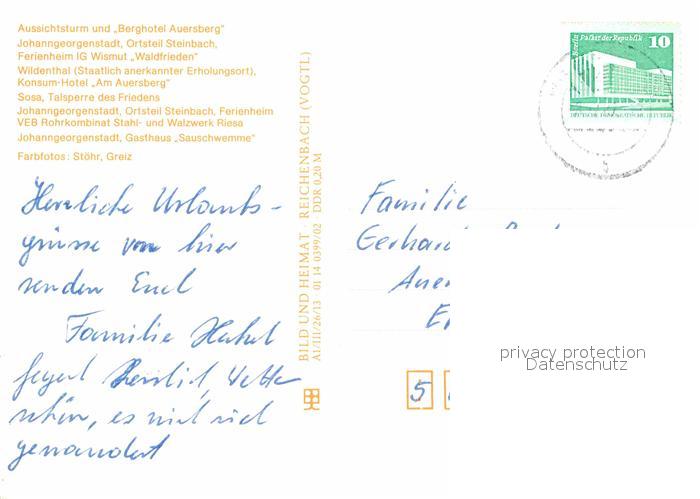 Aussichtsturm und „Berghotel Auersberg“
Johanngeorgenstadt, Ortsteil Steinbach,
Ferienheim IG Wismut „Waldfrieden“
Wildenthal (Staatlich anerkannter Erholungsort),
Konsum-Hotel „Am Auersberg“
Sosa, Talsperre des Friedens
Johanngeorgenstadt, Ortsteil Steinbach, Ferienheim
VEB Rohrkombinat Stahl- und Walzwerk Riesa
Johanngeorgenstadt, Gasthaus „Sauschwemme“
Farbfotos: Stöhr, Greiz
Herzliche Urlaubs-
grüsse von hier
senden Euch
Familie
schön, es
BILD UND HEIMAT · REICHENBACH (VOGTL)
A1/III/26/13 01 14 0399/02 · DDR 0,20 M
Berlin Palast der Republik
10
DEUTSCHE DEMOKRATISCHE REPUBLIK
Familie
Gerhard
5
privacy protection
Datenschutz